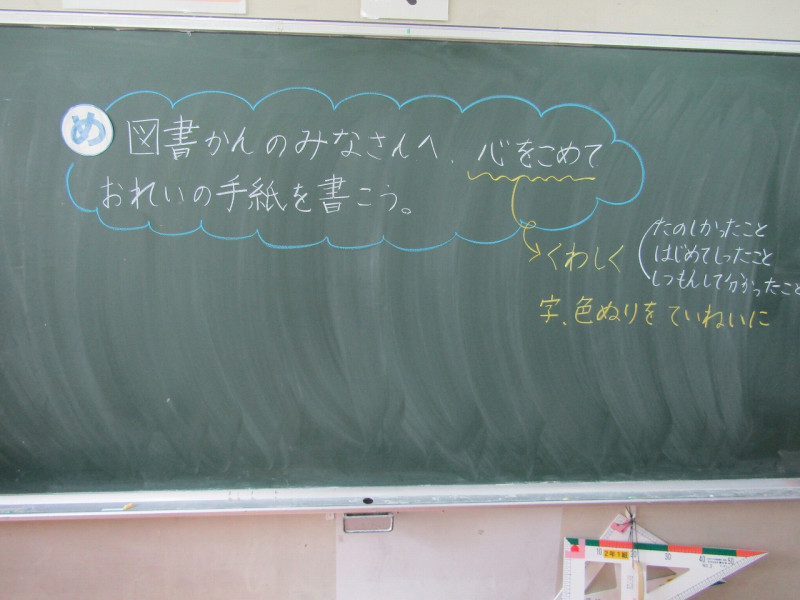 め
図書かんのみなさんへ、心をこめて
おれいの手紙を書こう。
くわしく
たのしかったこと
はじめてしったこと
しつもんして分かったこと
字、色ぬりをていねいに
10 2年1組 30 40 50